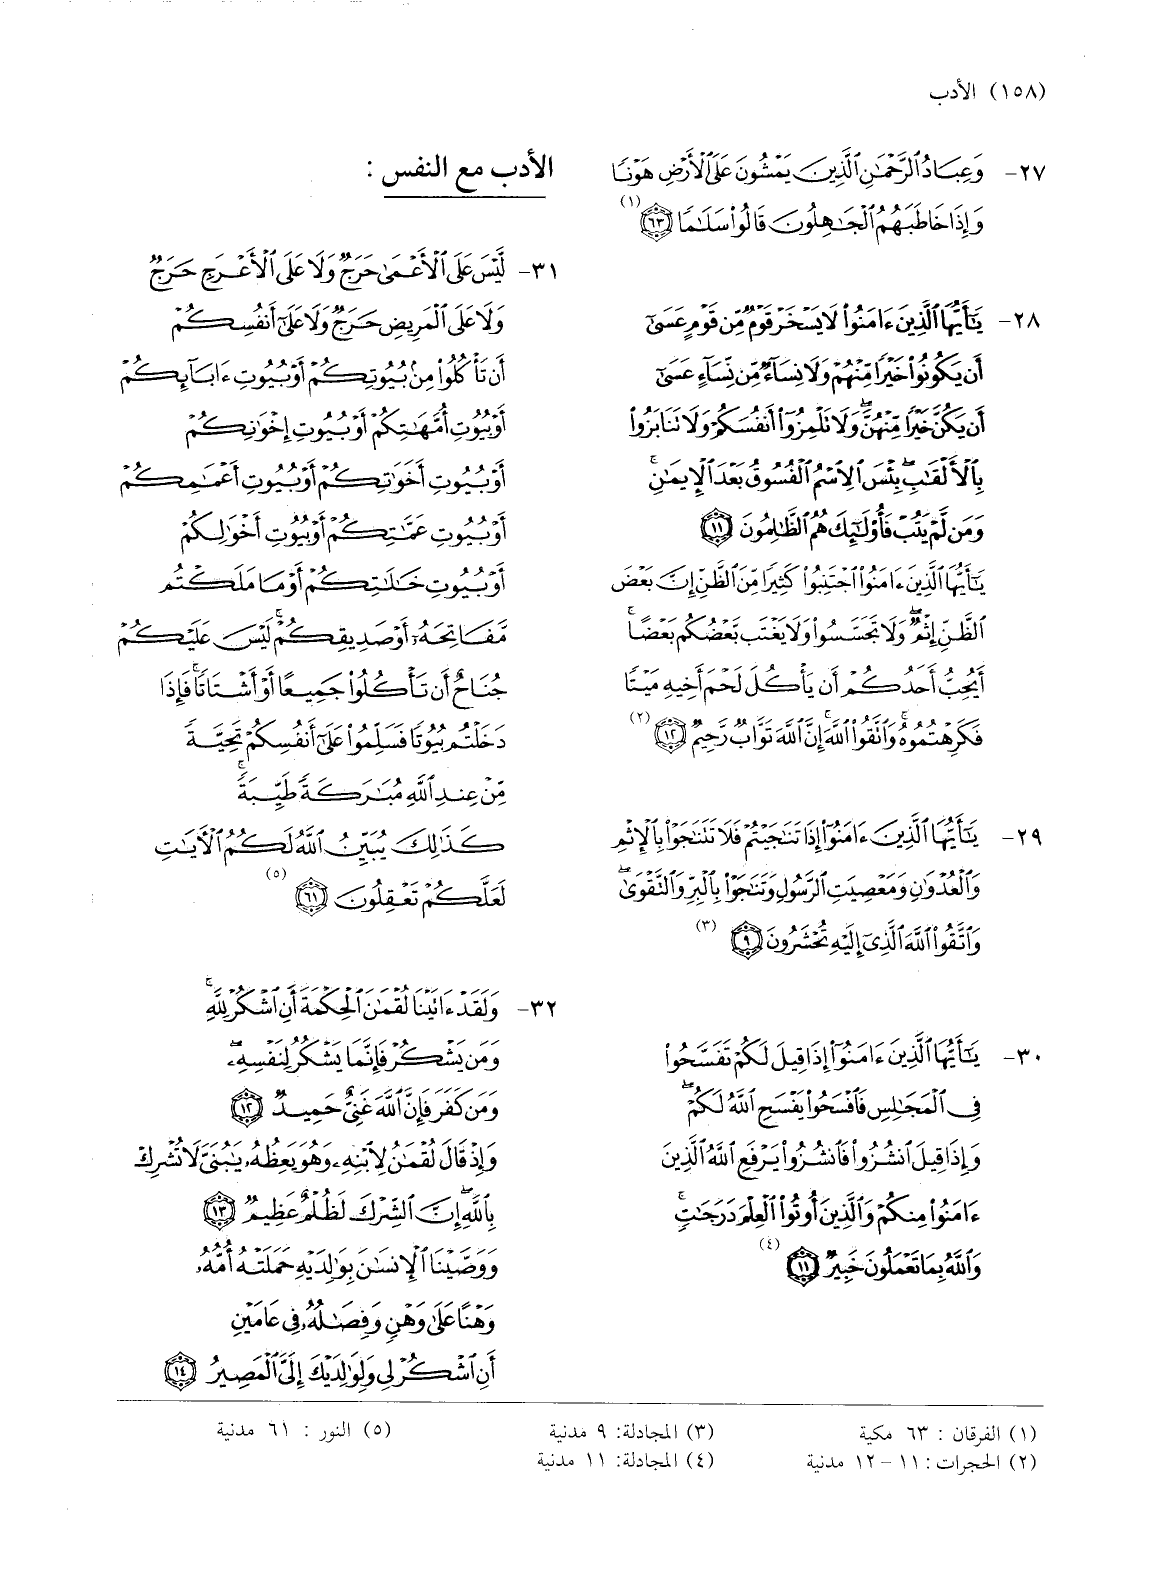 (١٥٨) الأدب
٢٧- وَعِبَادُ ٱلرَّحْمَٰنِ ٱلَّذِينَ يَمْشُونَ عَلَى ٱلْأَرْضِ هَوْنًا
وَإِذَا خَاطَبَهُمُ ٱلْجَٰهِلُونَ قَالُوا۟ سَلَٰمًا ﴿٦٣﴾ (١)
٢٨- يَٰٓأَيُّهَا ٱلَّذِينَ ءَامَنُوا۟ لَا يَسْخَرْ قَوْمٌ مِّن قَوْمٍ عَسَىٰٓ
أَن يَكُونُوا۟ خَيْرًا مِّنْهُمْ وَلَا نِسَآءٌ مِّن نِّسَآءٍ عَسَىٰٓ
أَن يَكُنَّ خَيْرًا مِّنْهُنَّ ۖ وَلَا تَلْمِزُوٓا۟ أَنفُسَكُمْ وَلَا تَنَابَزُوا۟
بِٱلْأَلْقَٰبِ ۖ بِئْسَ ٱلِٱسْمُ ٱلْفُسُوقُ بَعْدَ ٱلْإِيمَٰنِ ۚ
وَمَن لَّمْ يَتُبْ فَأُو۟لَٰٓئِكَ هُمُ ٱلظَّٰلِمُونَ ﴿١١﴾
يَٰٓأَيُّهَا ٱلَّذِينَ ءَامَنُوا۟ ٱجْتَنِبُوا۟ كَثِيرًا مِّنَ ٱلظَّنِّ إِنَّ بَعْضَ
ٱلظَّنِّ إِثْمٌ ۖ وَلَا تَجَسَّسُوا۟ وَلَا يَغْتَب بَّعْضُكُم بَعْضًا ۚ
أَيُحِبُّ أَحَدُكُمْ أَن يَأْكُلَ لَحْمَ أَخِيهِ مَيْتًا
فَكَرِهْتُمُوهُ ۚ وَٱتَّقُوا۟ ٱللَّهَ ۚ إِنَّ ٱللَّهَ تَوَّابٌ رَّحِيمٌ ﴿١٢﴾ (٢)
٢٩- يَٰٓأَيُّهَا ٱلَّذِينَ ءَامَنُوٓا۟ إِذَا تَنَٰجَيْتُمْ فَلَا تَتَنَٰجَوْا۟ بِٱلْإِثْمِ
وَٱلْعُدْوَٰنِ وَمَعْصِيَتِ ٱلرَّسُولِ وَتَنَٰجَوْا۟ بِٱلْبِرِّ وَٱلتَّقْوَىٰ ۖ
وَٱتَّقُوا۟ ٱللَّهَ ٱلَّذِىٓ إِلَيْهِ تُحْشَرُونَ ﴿٩﴾ (٣)
٣٠- يَٰٓأَيُّهَا ٱلَّذِينَ ءَامَنُوٓا۟ إِذَا قِيلَ لَكُمْ تَفَسَّحُوا۟
فِى ٱلْمَجَٰلِسِ فَٱفْسَحُوا۟ يَفْسَحِ ٱللَّهُ لَكُمْ ۖ
وَإِذَا قِيلَ ٱنشُزُوا۟ فَٱنشُزُوا۟ يَرْفَعِ ٱللَّهُ ٱلَّذِينَ
ءَامَنُوا۟ مِنكُمْ وَٱلَّذِينَ أُوتُوا۟ ٱلْعِلْمَ دَرَجَٰتٍ ۚ
وَٱللَّهُ بِمَا تَعْمَلُونَ خَبِيرٌ ﴿١١﴾ (٤)
الأدب مع النفس :
٣١- لَّيْسَ عَلَى ٱلْأَعْمَىٰ حَرَجٌ وَلَا عَلَى ٱلْأَعْرَجِ حَرَجٌ
وَلَا عَلَى ٱلْمَرِيضِ حَرَجٌ وَلَا عَلَىٰٓ أَنفُسِكُمْ
أَن تَأْكُلُوا۟ مِنۢ بُيُوتِكُمْ أَوْ بُيُوتِ ءَابَآئِكُمْ
أَوْ بُيُوتِ أُمَّهَٰتِكُمْ أَوْ بُيُوتِ إِخْوَٰنِكُمْ
أَوْ بُيُوتِ أَخَوَٰتِكُمْ أَوْ بُيُوتِ أَعْمَٰمِكُمْ
أَوْ بُيُوتِ عَمَّٰتِكُمْ أَوْ بُيُوتِ أَخْوَٰلِكُمْ
أَوْ بُيُوتِ خَٰلَٰتِكُمْ أَوْ مَا مَلَكْتُم
مَّفَاتِحَهُۥٓ أَوْ صَدِيقِكُمْ ۚ لَيْسَ عَلَيْكُمْ
جُنَاحٌ أَن تَأْكُلُوا۟ جَمِيعًا أَوْ أَشْتَاتًا ۚ فَإِذَا
دَخَلْتُم بُيُوتًا فَسَلِّمُوا۟ عَلَىٰٓ أَنفُسِكُمْ تَحِيَّةً
مِّنْ عِندِ ٱللَّهِ مُبَٰرَكَةً طَيِّبَةً ۚ
كَذَٰلِكَ يُبَيِّنُ ٱللَّهُ لَكُمُ ٱلْءَايَٰتِ
لَعَلَّكُمْ تَعْقِلُونَ ﴿٦١﴾ (٥)
٣٢- وَلَقَدْ ءَاتَيْنَا لُقْمَٰنَ ٱلْحِكْمَةَ أَنِ ٱشْكُرْ لِلَّهِ ۚ
وَمَن يَشْكُرْ فَإِنَّمَا يَشْكُرُ لِنَفْسِهِۦ ۖ
وَمَن كَفَرَ فَإِنَّ ٱللَّهَ غَنِىٌّ حَمِيدٌ ﴿١٢﴾
وَإِذْ قَالَ لُقْمَٰنُ لِٱبْنِهِۦ وَهُوَ يَعِظُهُۥ يَٰبُنَىَّ لَا تُشْرِكْ
بِٱللَّهِ ۖ إِنَّ ٱلشِّرْكَ لَظُلْمٌ عَظِيمٌ ﴿١٣﴾
وَوَصَّيْنَا ٱلْإِنسَٰنَ بِوَٰلِدَيْهِ حَمَلَتْهُ أُمُّهُۥ
وَهْنًا عَلَىٰ وَهْنٍ وَفِصَٰلُهُۥ فِى عَامَيْنِ
أَنِ ٱشْكُرْ لِى وَلِوَٰلِدَيْكَ إِلَىَّ ٱلْمَصِيرُ ﴿١٤﴾
(١) الفرقان : ٦٣ مكية
(٢) الحجرات : ١١ - ١٢ مدنية
(٣) المجادلة: ٩ مدنية
(٤) المجادلة: ١١ مدنية
(٥) النور : ٦١ مدنية